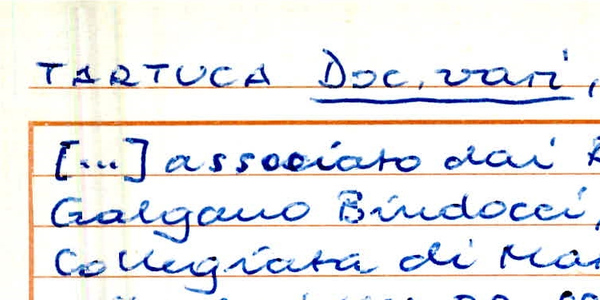 TARTUCA Doc. vari,
[...] associato dai
Galgano Bindocci,
Collegiata di